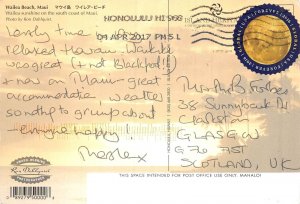 Wailea Beach, Maui マウイ島 ワイレア・ビーチ
Wailea sunshine on the south coast of Maui.
Photo by Ron Dahlquist
HONOLULU HI 968
04 APR 2017 PM 5 L
FOREVER
Lovely time
relaxed Hawaii. Waikiki
was great (+ not Blackpool)
+ now on Maui - great
accommodation weather
so nothing to grump about
happy
Mr + Mrs B Forbes
38 Sunnybank
Clarkston
GLASGOW
G76 7ST
SCOTLAND, UK
Ron Dahlquist
THIS SPACE INTENDED FOR POST OFFICE USE ONLY. MAHALO!